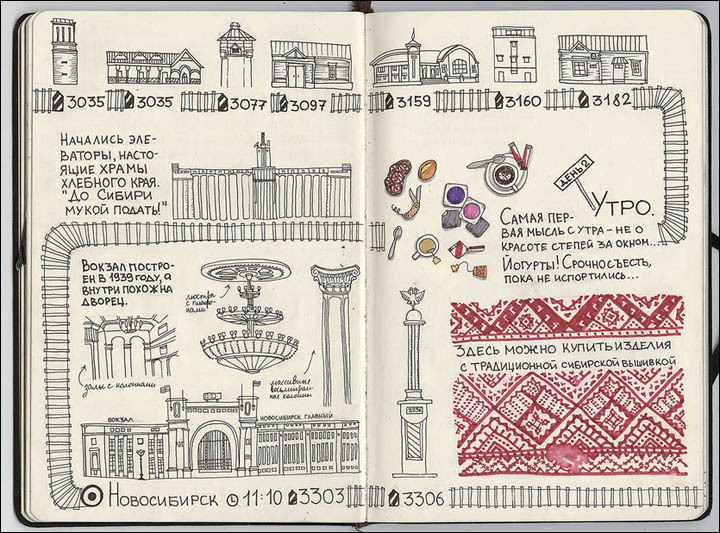 3035
3035
3077
3097
3159
3160
3182
НАЧАЛИСЬ ЭЛЕ-
ВАТОРЫ, НАСТО-
ЯЩИЕ ХРАМЫ
ХЛЕБНОГО КРАЯ.
"ДО СИБИРИ
МУКОЙ ПОДАТЬ!"
ДЕНЬ 2
УТРО.
САМАЯ ПЕР-
ВАЯ МЫСЛЬ С УТРА - НЕ О
КРАСОТЕ СТЕПЕЙ ЗА ОКНОМ...
ЙОГУРТЫ! СРОЧНО СЪЕСТЬ,
ПОКА НЕ ИСПОРТИЛИСЬ...
ВОКЗАЛ ПОСТРО-
ЕН В 1939 ГОДУ, А
ВНУТРИ ПОХОЖ НА
ДВОРЕЦ.
люстра
с плафо-
нами!
залы с колоннами
массивные
восьмигран-
ные колонны
ВОКЗАЛ
НОВОСИБИРСК ГЛАВНЫЙ
НОВОСИБИРСК 11:10 3303
3336
3306
ЗДЕСЬ МОЖНО КУПИТЬ ИЗДЕЛИЯ
С ТРАДИЦИОННОЙ СИБИРСКОЙ ВЫШИВКОЙ